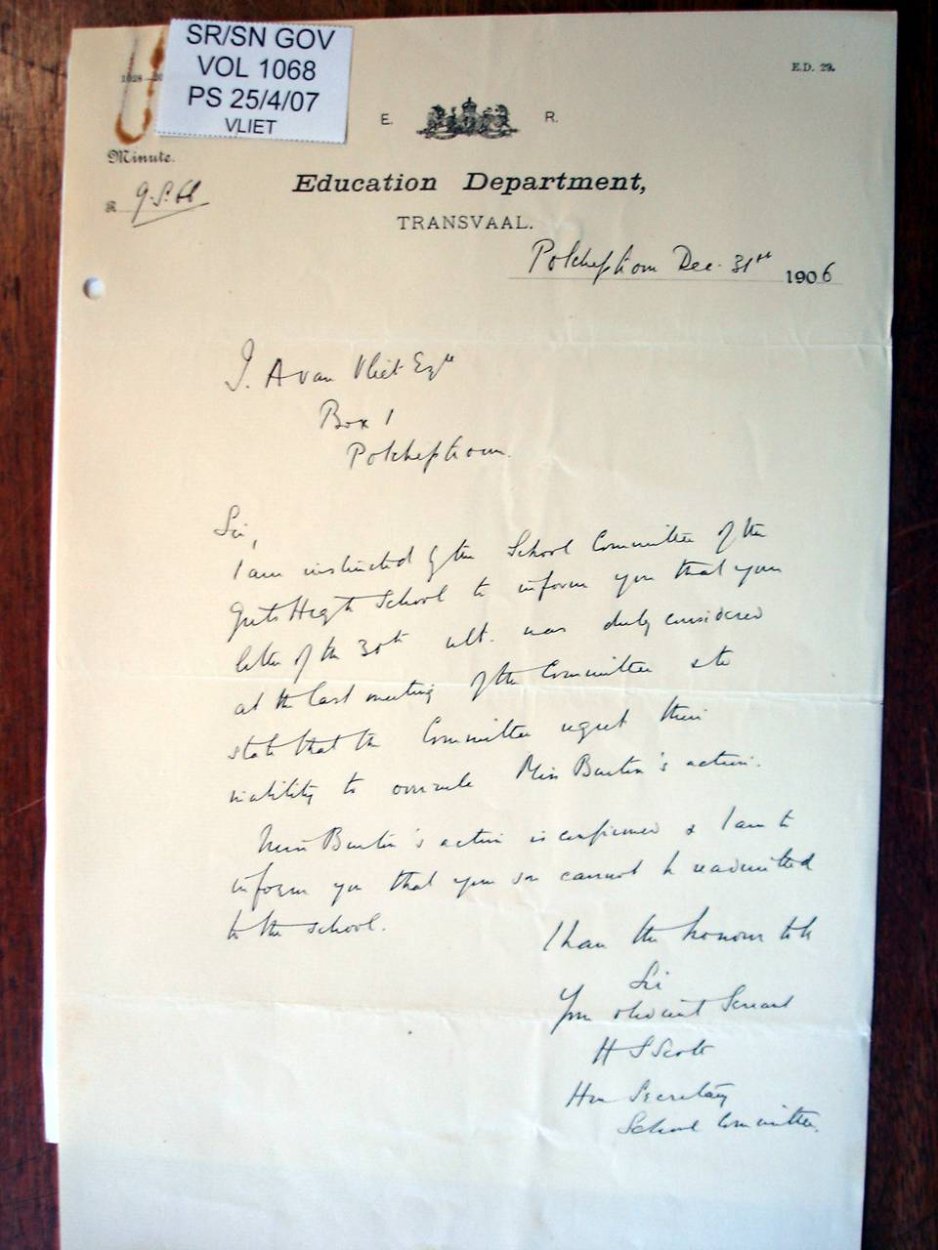 SR/SN GOV
VOL 1068
PS 25/4/07
VLIET
E.D. 29.
E. R.
Minute.
Education Department,
TRANSVAAL.
Potchefstroom Dec. 31st 1906
J. A van Vliet Esqre
Box 1
Potchefstroom.
Sir,
I am instructed by the School Committee of the
Girls High School to inform you that your
letter of the 30th ult. was duly considered
at the last meeting of the Committee & to
state that the Committee regret their
inability to overrule Miss Burton's action.
Miss Burton's action is confirmed & I am to
inform you that your son cannot be readmitted
to the school.
I have the honour to be
Sir
Your obedient Servant
H S Scott
Hon Secretary
School Committee.